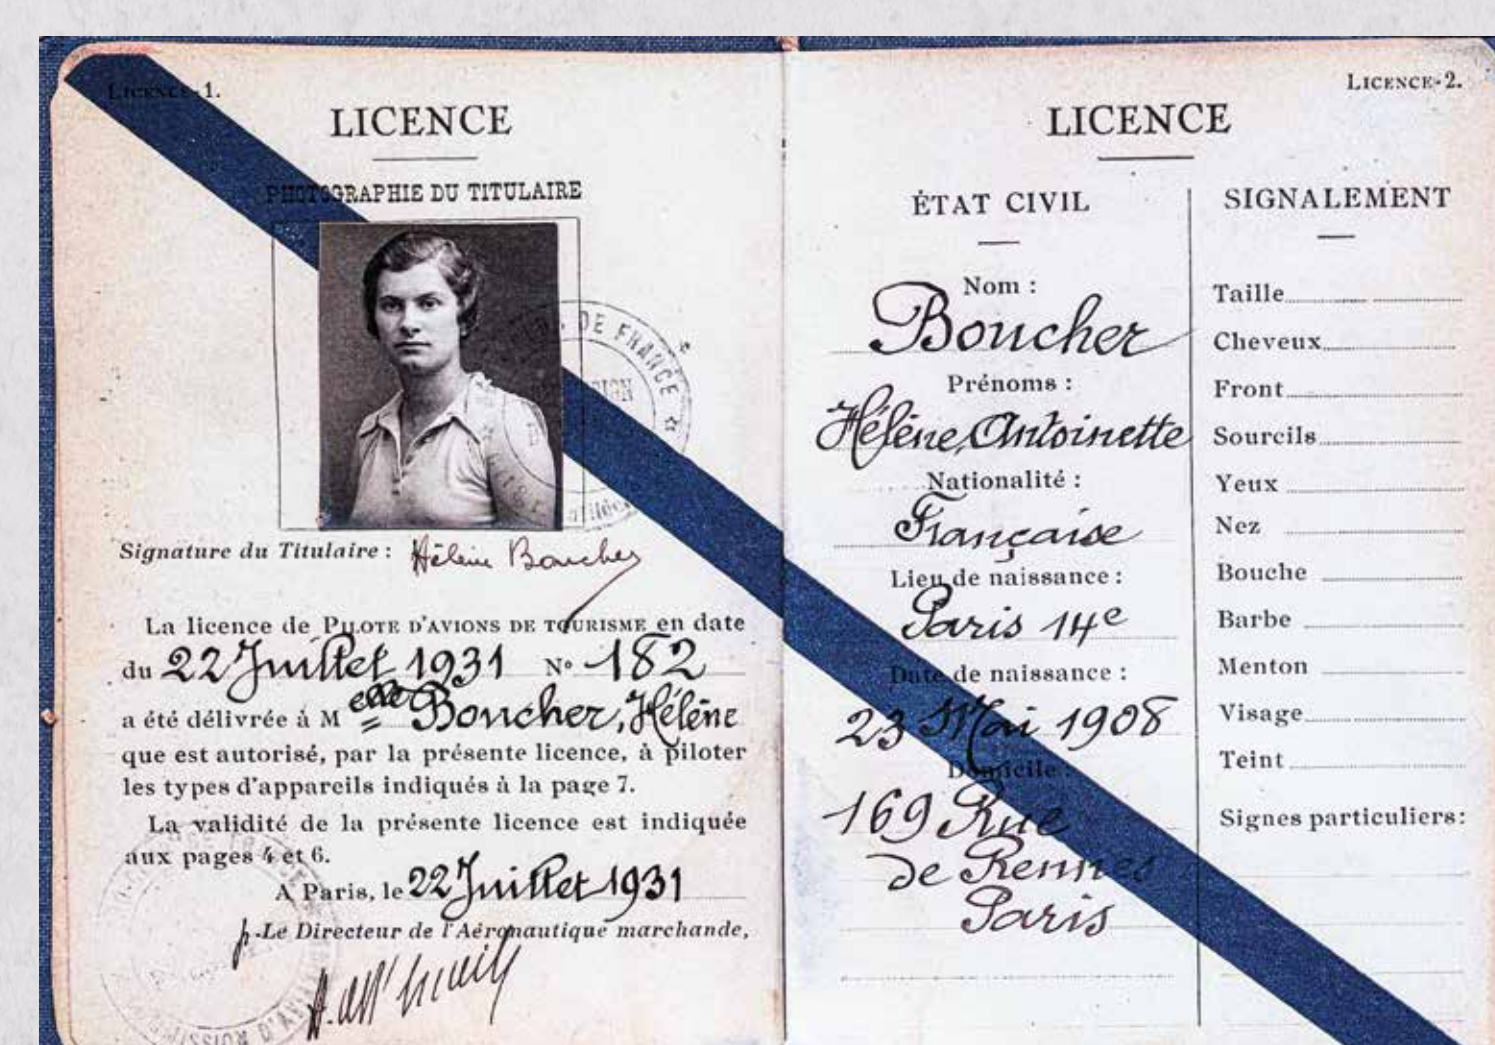 LICENCE-1.
LICENCE
PHOTOGRAPHIE DU TITULAIRE
DE FRANCE
Signature du Titulaire : Hélène Boucher
La licence de PILOTE D'AVIONS DE TOURISME en date
du 22 Juillet 1931 N° 182
a été délivrée à M elle Boucher, Hélène
que est autorisé, par la présente licence, à piloter
les types d'appareils indiqués à la page 7.
La validité de la présente licence est indiquée
aux pages 4 et 6.
A Paris, le 22 Juillet 1931
p.-Le Directeur de l'Aéronautique marchande,
LICENCE-2.
LICENCE
ÉTAT CIVIL
Nom :
Boucher
Prénoms :
Hélène, Antoinette
Nationalité :
Française
Lieu de naissance :
Paris 14e
Date de naissance :
23 Mai 1908
Domicile :
169 Rue
de Rennes
Paris
SIGNALEMENT
Taille
Cheveux
Front
Sourcils
Yeux
Nez
Bouche
Barbe
Menton
Visage
Teint
Signes particuliers :